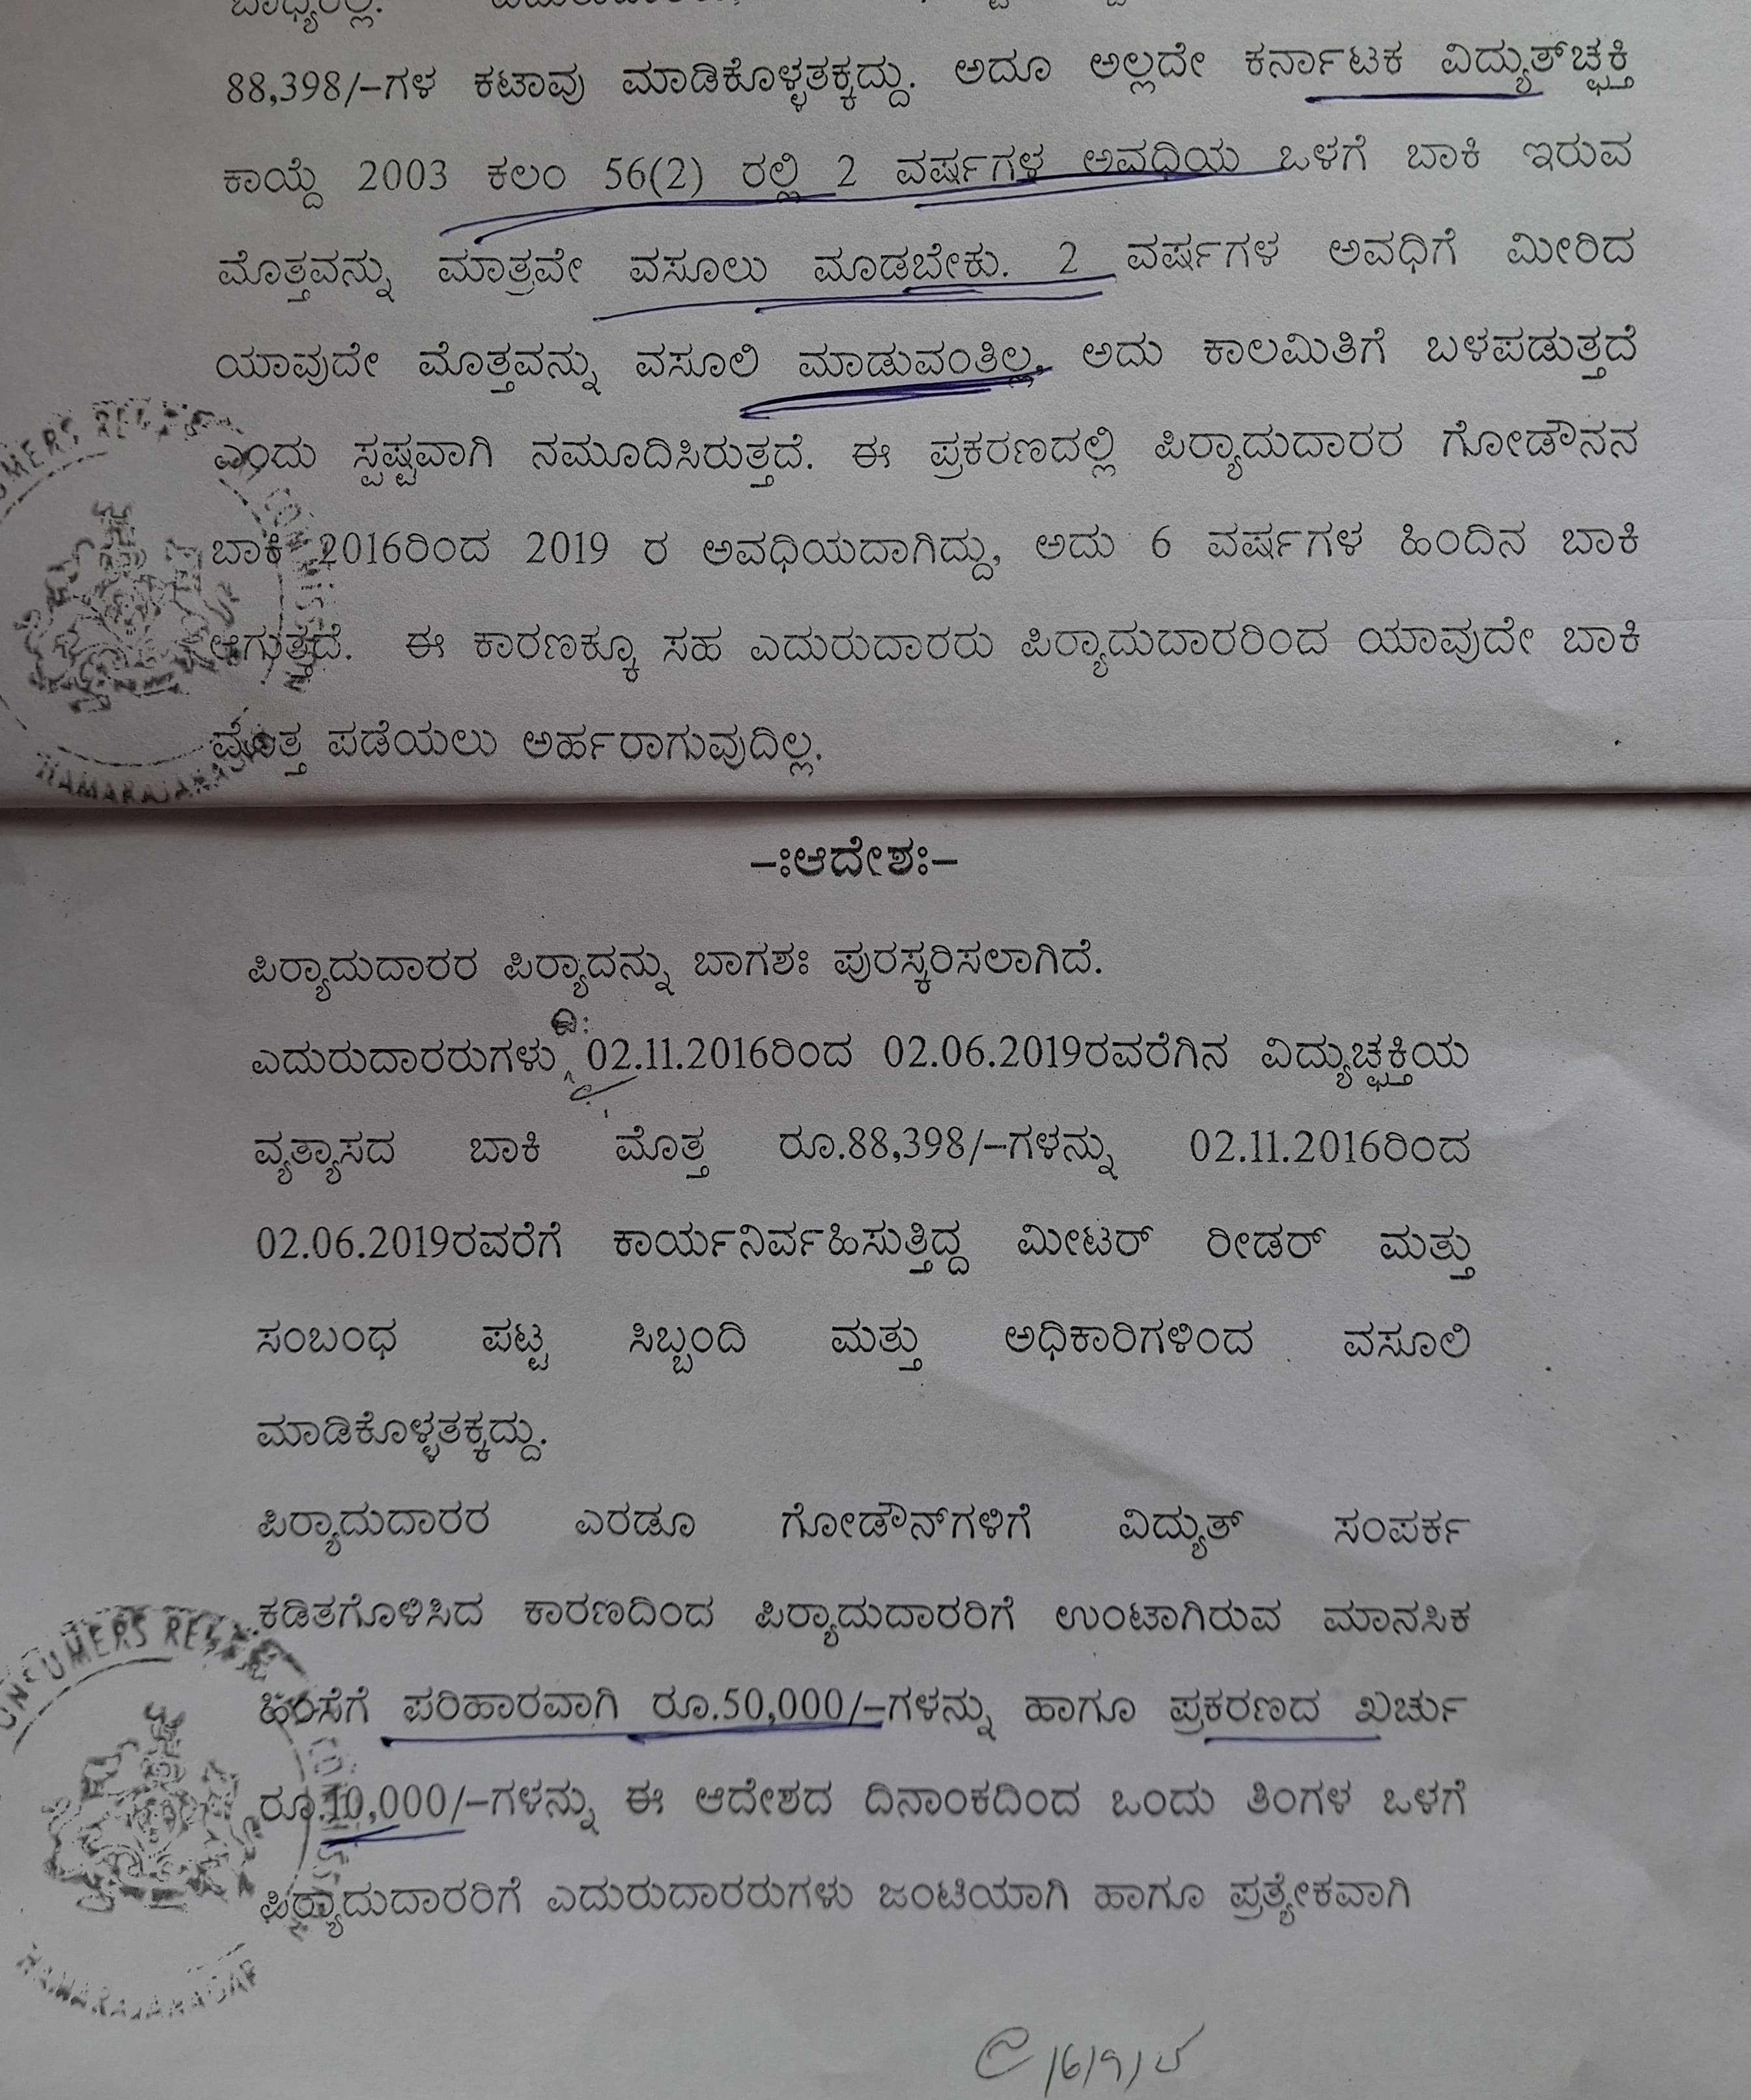 88,398/-ಗಳ ಕಟಾವು ಮಾಡಿಕೊಳ್ಳತಕ್ಕದ್ದು. ಅದೂ ಅಲ್ಲದೇ ಕರ್ನಾಟಕ ವಿದ್ಯುತ್‌ಚ್ಛಕ್ತಿ
ಕಾಯ್ದೆ 2003 ಕಲಂ 56(2) ರಲ್ಲಿ 2 ವರ್ಷಗಳ ಅವಧಿಯ ಒಳಗೆ ಬಾಕಿ ಇರುವ
ಮೊತ್ತವನ್ನು ಮಾತ್ರವೇ ವಸೂಲು ಮಾಡಬೇಕು. 2 ವರ್ಷಗಳ ಅವಧಿಗೆ ಮೀರಿದ
ಯಾವುದೇ ಮೊತ್ತವನ್ನು ವಸೂಲಿ ಮಾಡುವಂತಿಲ್ಲ, ಅದು ಕಾಲಮಿತಿಗೆ ಬಳಪಡುತ್ತದೆ
ಎಂದು ಸ್ಪಷ್ಟವಾಗಿ ನಮೂದಿಸಿರುತ್ತದೆ. ಈ ಪ್ರಕರಣದಲ್ಲಿ ಪಿರ್‍ಯಾದುದಾರರ ಗೋಡೌನನ
ಬಾಕಿ 2016ರಿಂದ 2019 ರ ಅವಧಿಯದಾಗಿದ್ದು, ಅದು 6 ವರ್ಷಗಳ ಹಿಂದಿನ ಬಾಕಿ
ಆಗುತ್ತದೆ. ಈ ಕಾರಣಕ್ಕೂ ಸಹ ಎದುರುದಾರರು ಪಿರ್‍ಯಾದುದಾರರಿಂದ ಯಾವುದೇ ಬಾಕಿ
ಮೊತ್ತ ಪಡೆಯಲು ಅರ್ಹರಾಗುವುದಿಲ್ಲ.
-ಃಆದೇಶಃ-
ಪಿರ್‍ಯಾದುದಾರರ ಪಿರ್‍ಯಾದನ್ನು ಬಾಗಶಃ ಪುರಸ್ಕರಿಸಲಾಗಿದೆ.
ಎದುರುದಾರರುಗಳು 02.11.2016ರಿಂದ 02.06.2019ರವರೆಗಿನ ವಿದ್ಯುಚ್ಛಕ್ತಿಯ
ವ್ಯತ್ಯಾಸದ ಬಾಕಿ ಮೊತ್ತ ರೂ.88,398/-ಗಳನ್ನು 02.11.2016ರಿಂದ
02.06.2019ರವರೆಗೆ ಕಾರ್ಯನಿರ್ವಹಿಸುತ್ತಿದ್ದ ಮೀಟರ್ ರೀಡರ್ ಮತ್ತು
ಸಂಬಂಧ ಪಟ್ಟ ಸಿಬ್ಬಂದಿ ಮತ್ತು ಅಧಿಕಾರಿಗಳಿಂದ ವಸೂಲಿ
ಮಾಡಿಕೊಳ್ಳತಕ್ಕದ್ದು.
ಪಿರ್‍ಯಾದುದಾರರ ಎರಡೂ ಗೋಡೌನ್‌ಗಳಿಗೆ ವಿದ್ಯುತ್ ಸಂಪರ್ಕ
ಕಡಿತಗೊಳಿಸಿದ ಕಾರಣದಿಂದ ಪಿರ್‍ಯಾದುದಾರರಿಗೆ ಉಂಟಾಗಿರುವ ಮಾನಸಿಕ
ಹಿಂಸೆಗೆ ಪರಿಹಾರವಾಗಿ ರೂ.50,000/-ಗಳನ್ನು ಹಾಗೂ ಪ್ರಕರಣದ ಖರ್ಚು
ರೂ.10,000/-ಗಳನ್ನು ಈ ಆದೇಶದ ದಿನಾಂಕದಿಂದ ಒಂದು ತಿಂಗಳ ಒಳಗೆ
ಪಿರ್‍ಯಾದುದಾರರಿಗೆ ಎದುರುದಾರರುಗಳು ಜಂಟಿಯಾಗಿ ಹಾಗೂ ಪ್ರತ್ಯೇಕವಾಗಿ